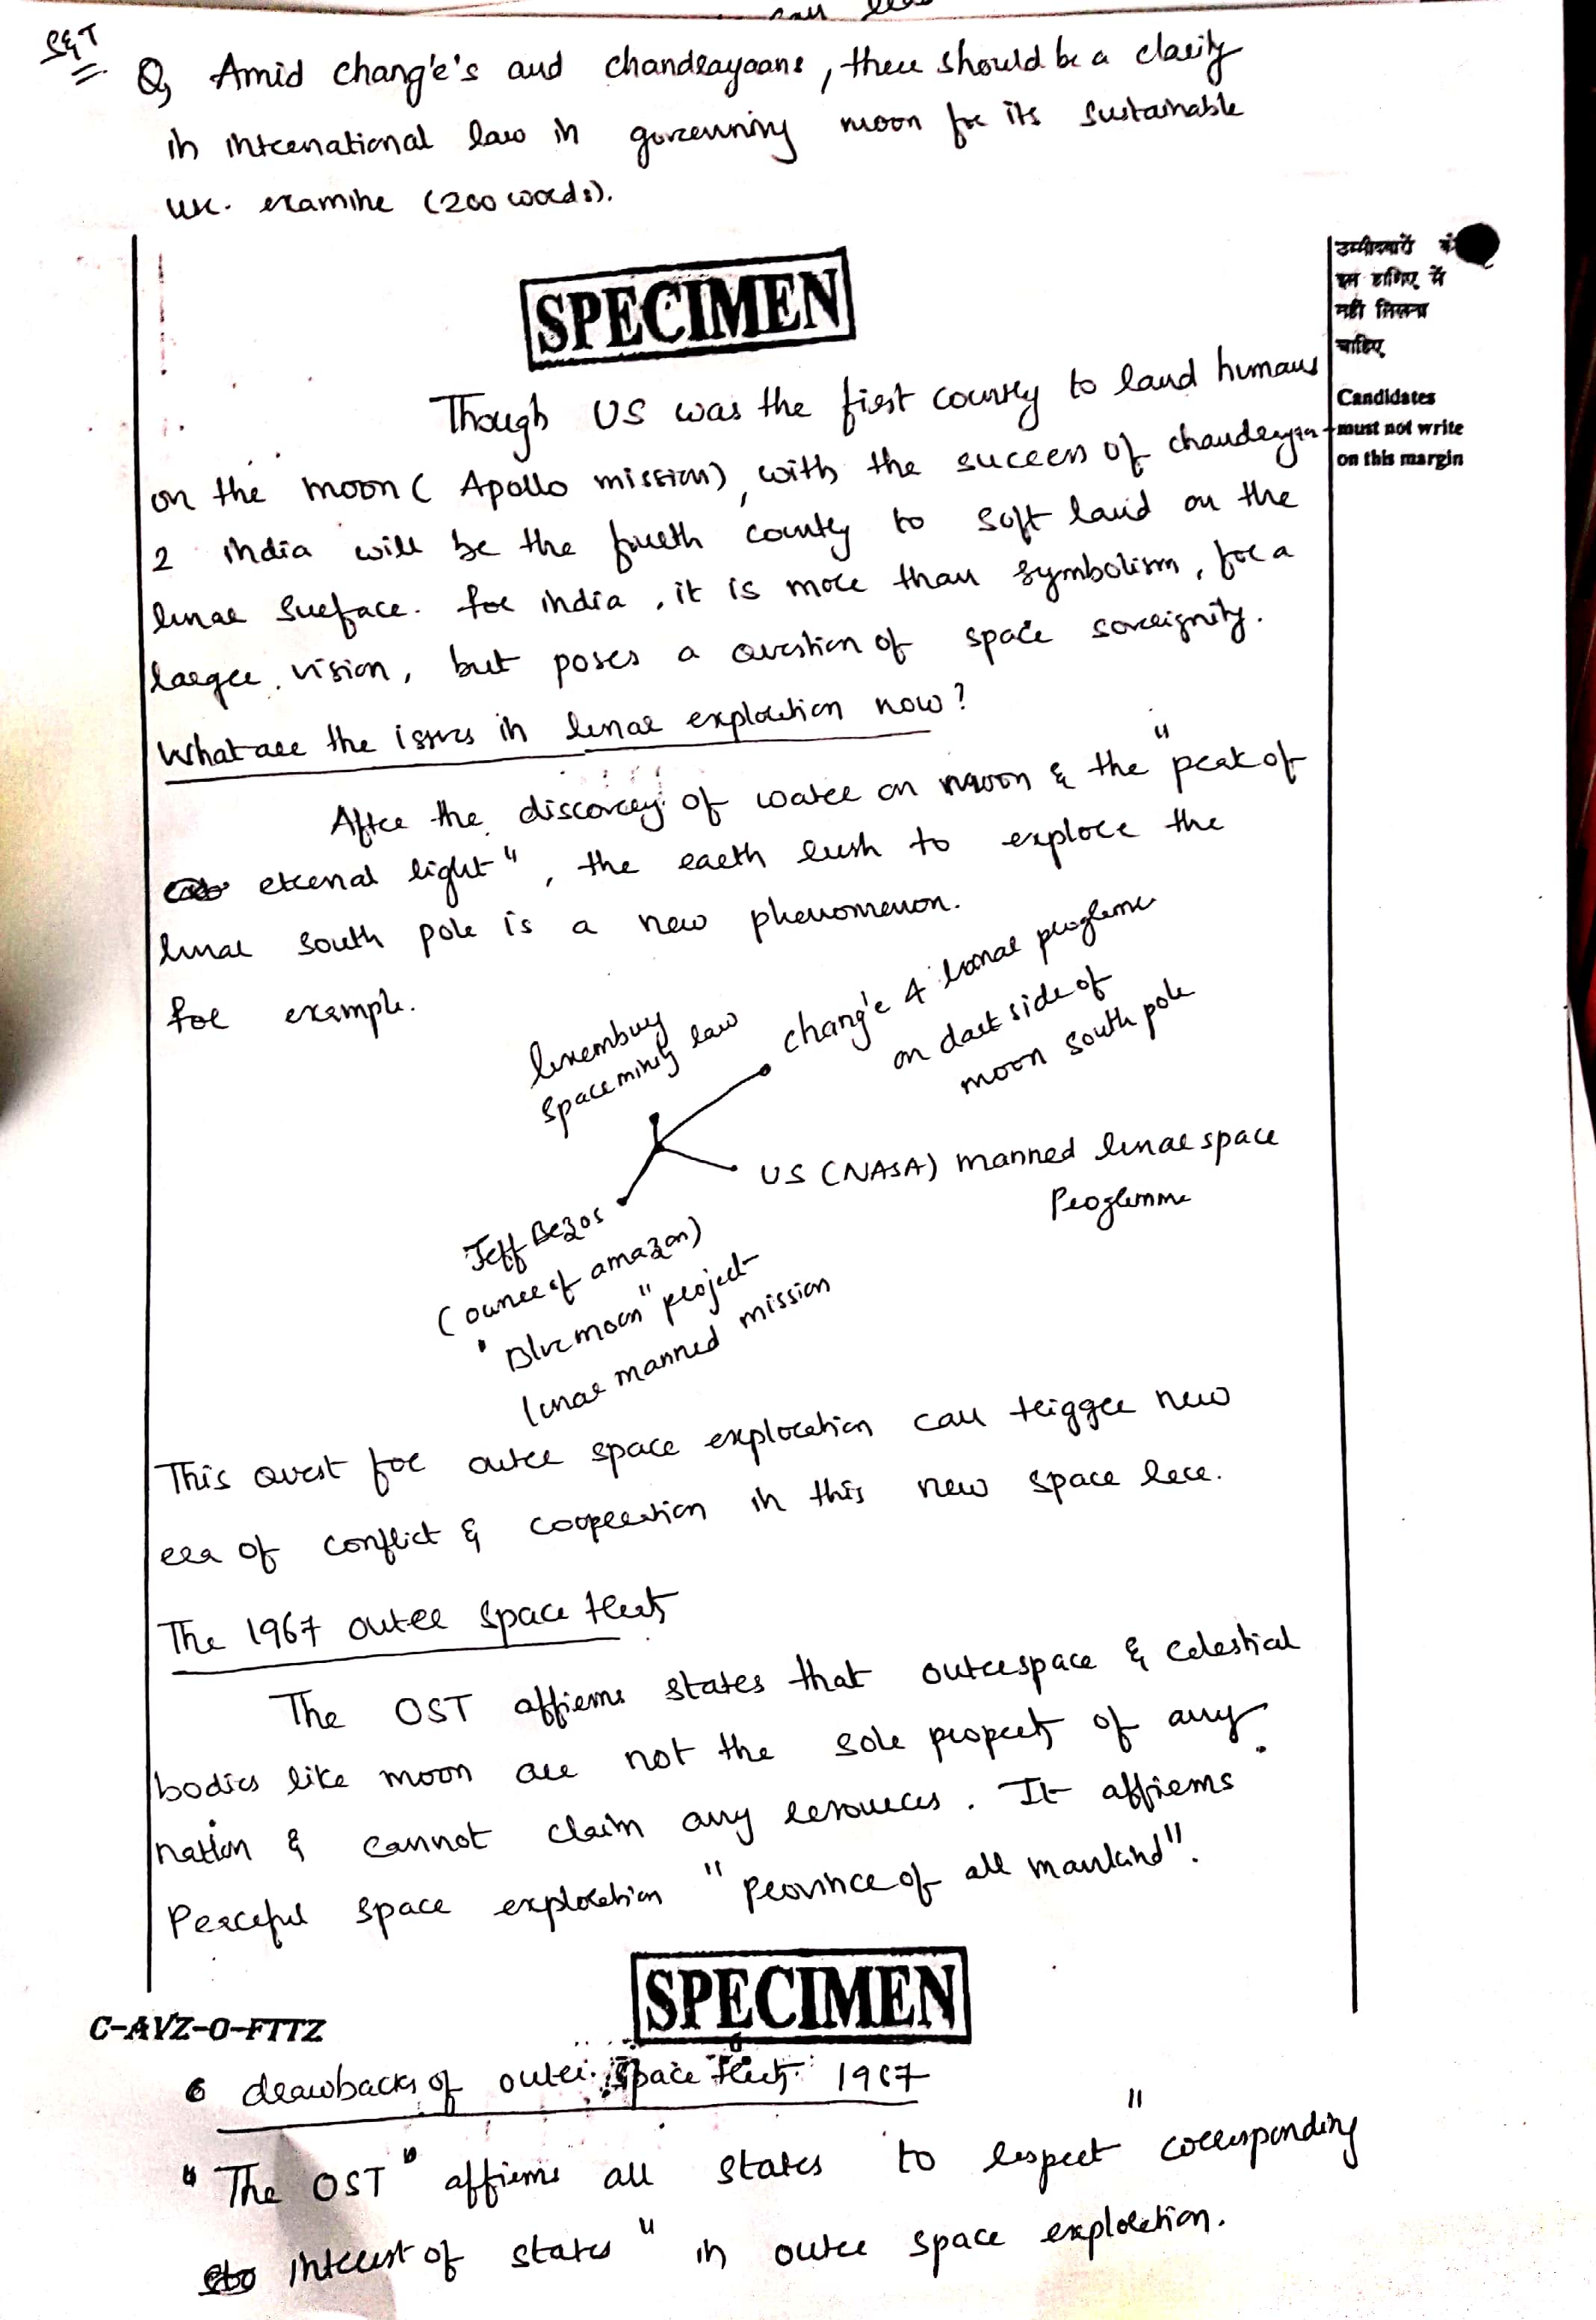 S&T
Q, Amid chang'e's and chandrayaans, there should be a clarity
in international law in governing moon for its sustainable
use. examine (200 words).
SPECIMEN
उम्मीदवारों को
इस हाशिए में
नहीं लिखना
चाहिए
Candidates
must not write
on this margin
Though US was the first country to land humans
on the moon ( Apollo mission), with the success of chandrayaan
2 india will be the fourth country to soft land on the
lunar surface. for india, it is more than symbolism, for a
larger vision, but poses a question of space soveignity.
What are the issues in lunar exploration now?
After the discovery of water on moon & the "peak of
eternal light", the earth rush to explore the
lunar south pole is a new phenomenon.
for example.
luxembury
space mining law
chang'e 4 lunar programe
on dark side of
moon south pole
US (NASA) manned lunar space
Programme
Jeff Bezos
(owner of amazon)
"Blue moon" project
lunar manned mission
This quest for outer space exploration can trigger new
era of conflict & cooperation in this new space race.
The 1967 outer space treaty
The OST affirms states that outerspace & celestial
bodies like moon are not the sole property of any
nation & cannot claim any resources. It affirms
Peaceful space exploration "province of all mankind".
SPECIMEN
C-AVZ-O-FTTZ
6 drawbacks of outer space treaty 1967
"The OST" affirms all states to respect "corresponding
interest of states" in outer space exploration.